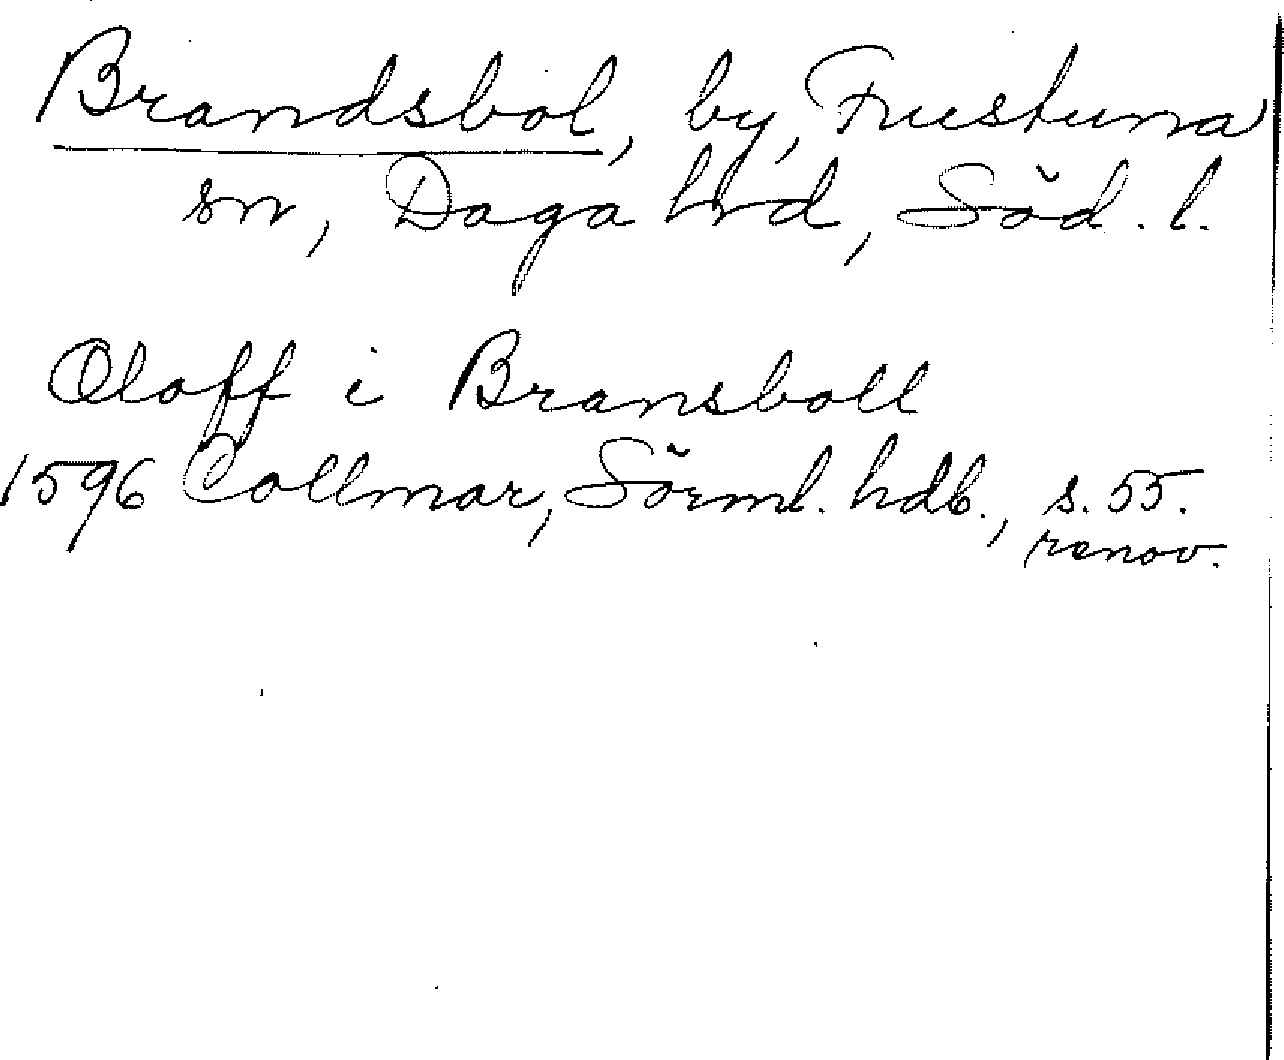 Brandsbol, by, Frustuna
sn, Daga hrd, Söd. l.
Oloff i Bransboll
1596 Collmar, Sörml. hdb., s. 55.
renov.